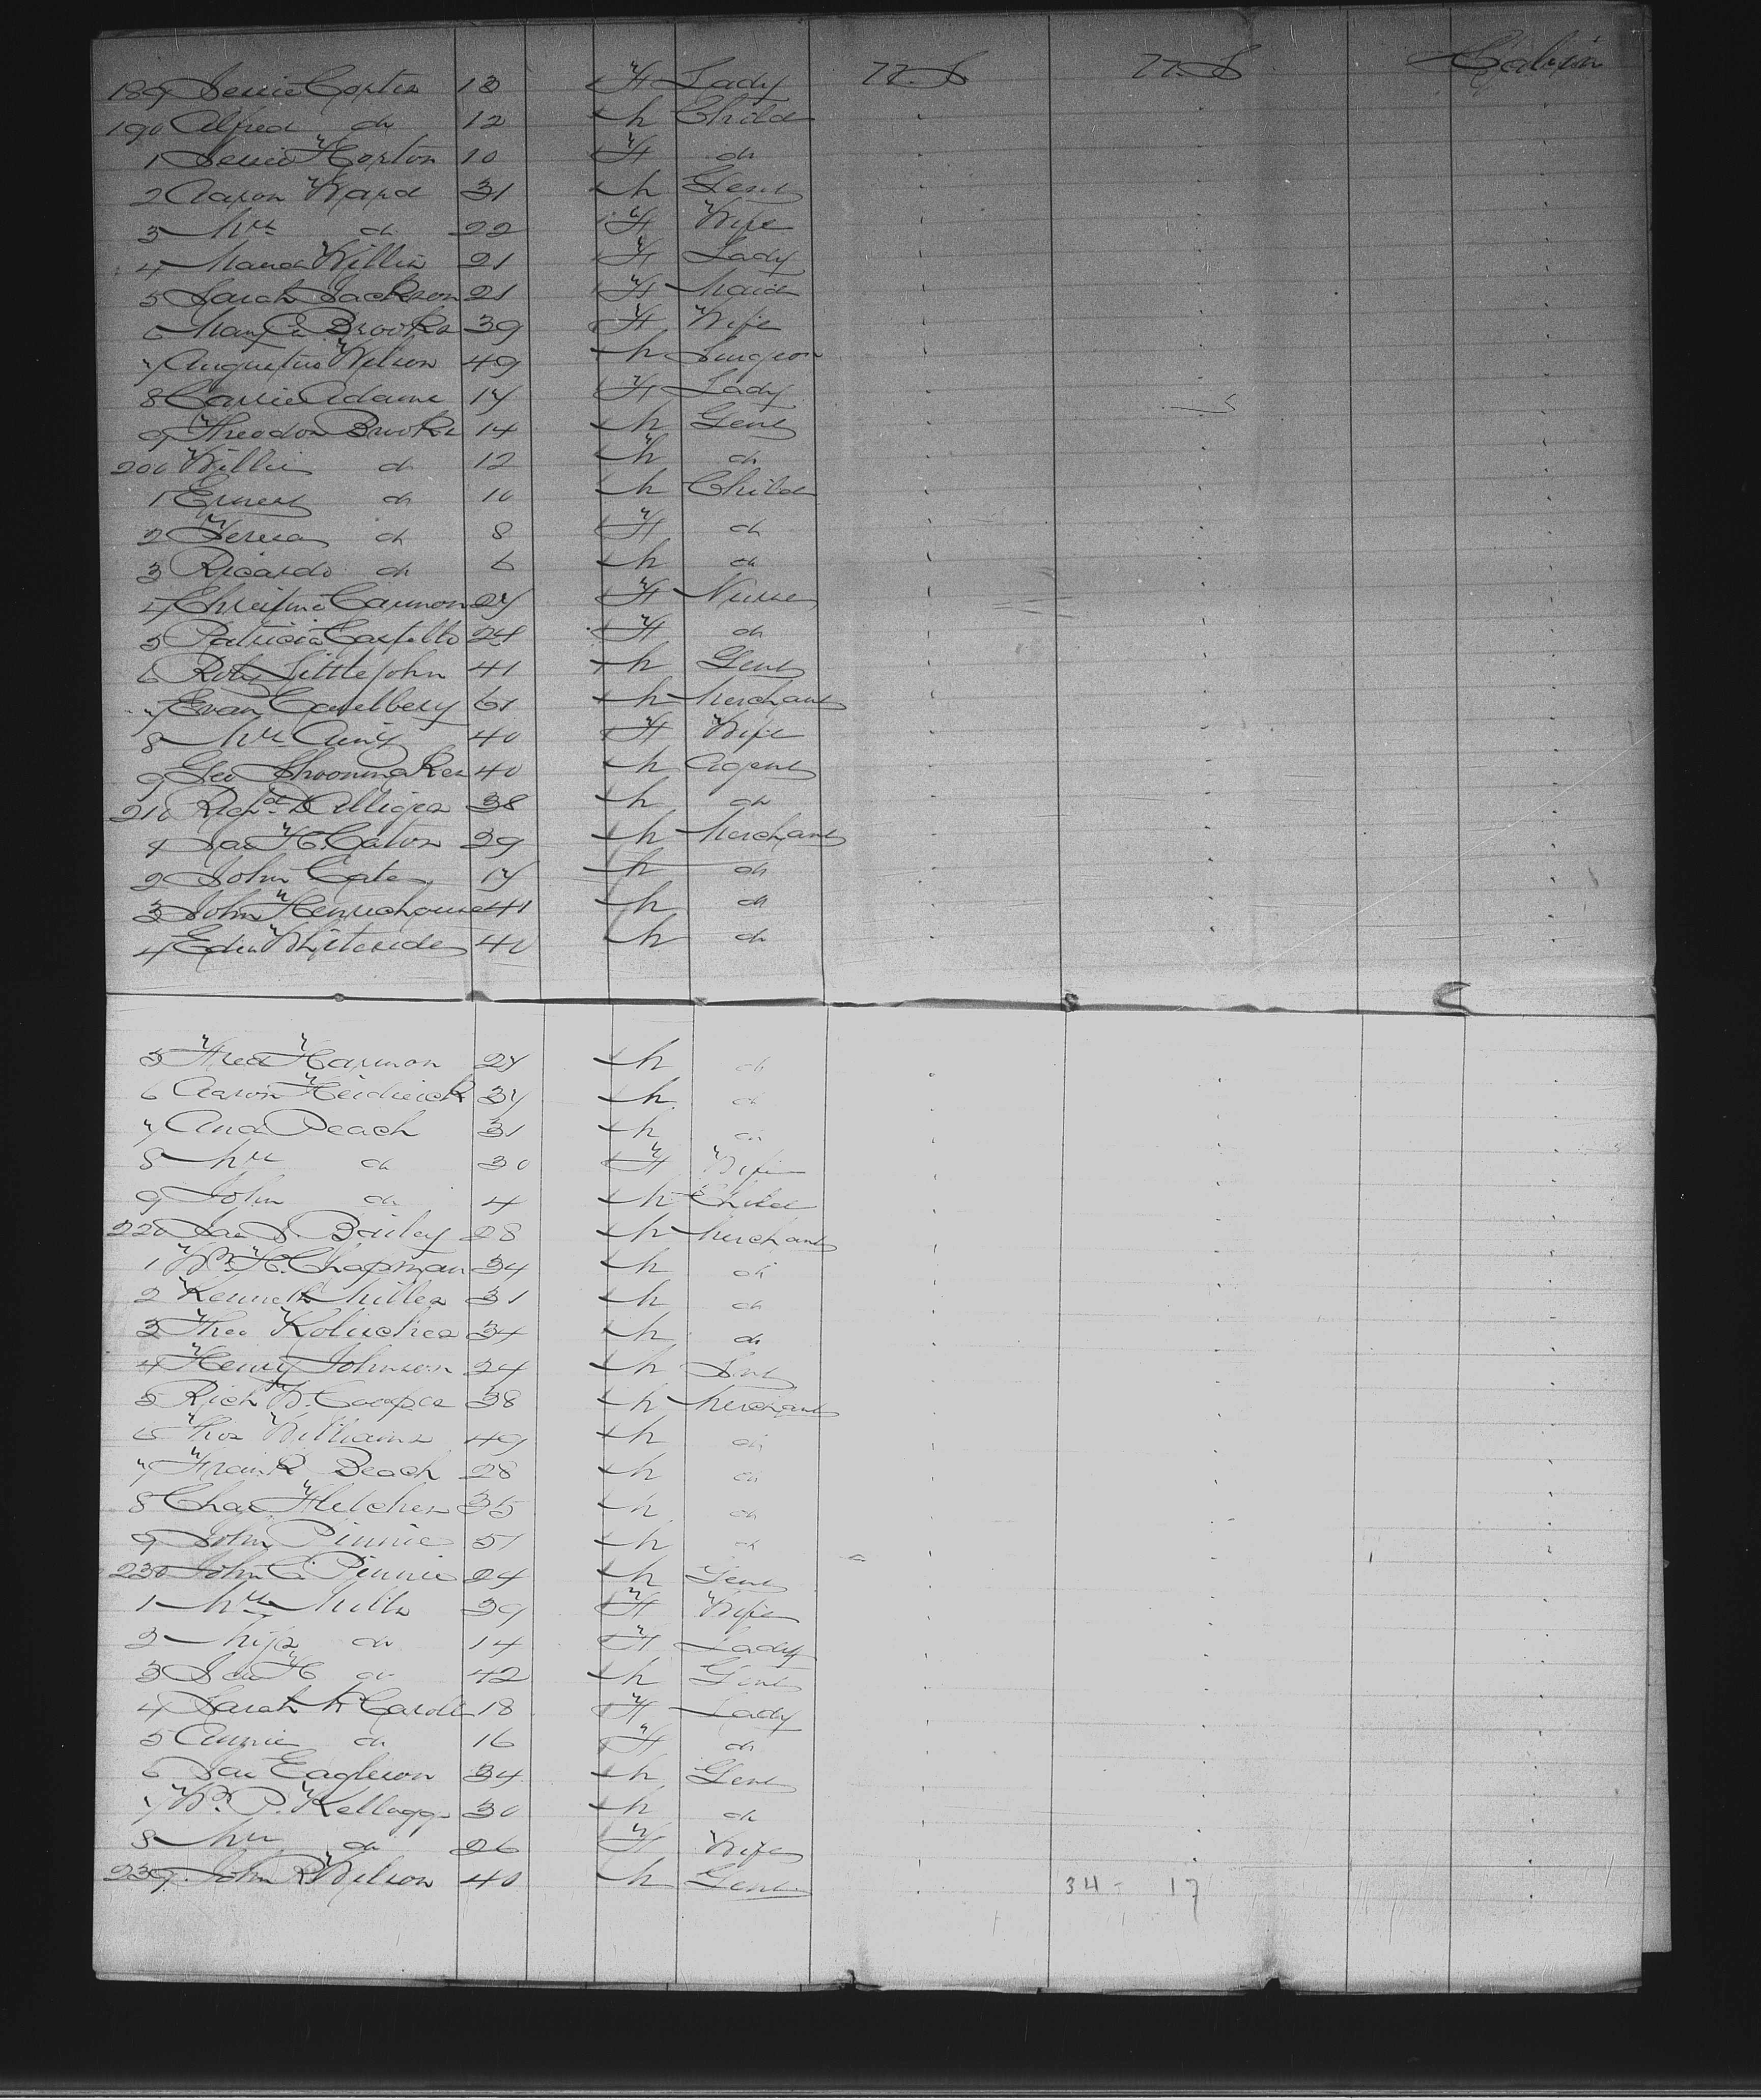 189 Jessie Corter 13 F Lady U.S U.S Cabin
190 Alfred do 12 M Child
1 Jessie Horton 10 F do
2 Aaron Ward 31 M Gent
3 Mrs do 22 F Wife
4 Maud Willis 21 F Lady
5 Sarah Jackson 21 F Maid
6 Mary E. Brooks 39 F Wife
7 Augustus Wilson 49 M Surgeon
8 Carrie Adams 17 F Lady
9 Theodor Brooks 14 M Gent
200 Willie do 12 M do
1 Ernest do 10 M Child
2 Teresa do 8 F do
3 Ricardo do 6 M do
4 Christine Cannon 27 F Nurse
5 Patricia 24 F do
6 Robt Littlejohn 41 M Gent
7 Evan 61 M Merchant
8 Mrs 40 F Wife
9 Geo Shoonmaker 40 M Agent
210 Richd D Alliger 38 M do
1 Jas H. Caton 29 M Merchant
2 John Cate 17 M do
3 John 41 M do
4 Edw Whiteside 40 M do
5 Fred Harmon 27 M do
6 Aaron Heidrick 37 M do
7 And Peach 31 M do
8 Mrs do 30 F Wife
9 John do 4 M Child
220 Jas S. Bailey 28 M Merchant
1 Wm H. Chapman 34 M do
2 Kenneth Miller 31 M do
3 Theo 34 M do
4 Henry Johnson 24 M
5 Rich W. Cooper 38 M Merchant
6 Thos Williams 49 M do
7 Frank Beach 28 M do
8 Chas Fletcher 35 M do
9 John Pinnie 51 M do
230 John C. Pinnie 24 M Gent
1 Mrs Mills 39 F Wife
2 Miss do 14 F Lady
3 Jas H do 42 M Gent
4 Sarah M Caroll 18 F Lady
5 Annie do 16 F do
6 Jas Eagleson 34 M Gent
7 Wm P. Kellogg 30 M do
8 Mrs do 26 F Wife
239 John R Wilson 40 M Gent
34 - 17